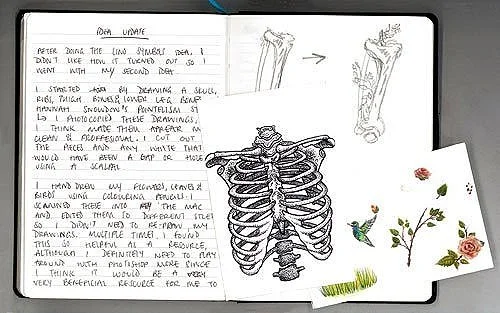 IDEA UPDATE
AFTER DOING THE LINO SYMBOLS IDEA, I
DIDN'T LIKE HOW IT TURNED OUT SO I
WENT WITH MY SECOND IDEA.
I STARTED BY DRAWING A SKULL,
RIBS, THIGH BONES & LOWER LEG BONE
HANNAH SNOWDON'S POINTELISM ST
I PHOTOCOPIED THESE DRAWINGS,
I THINK MADE THEM APPEAR M
CLEAN & PROFFESIONAL. I CUT OUT
THE PIECES AND ANY WHITE THAT
WOULD HAVE BEEN A GAP OR HOLE
USING A SCALPAL
I HAND DREW MY FLOWERS, LEAVES &
BIRDS USING COLOURING PENCILS. I
SCANNED THESE INTO THE MAC
AND EDITED THEM SO DIFFERENT SIZES
SO I DIDN'T NEED TO RE-DRAW MY
DRAWINGS MULTIPLE TIMES. I FOUND
THIS SO HELPFUL AS A RESOURCE,
ALTHOUGH I DEFINITELY NEED TO PLAY
AROUND WITH PHOTOSHOP MORE SINCE
I THINK IT WOULD BE A VERY
VERY BENEFICIAL RESOURCE FOR ME TO